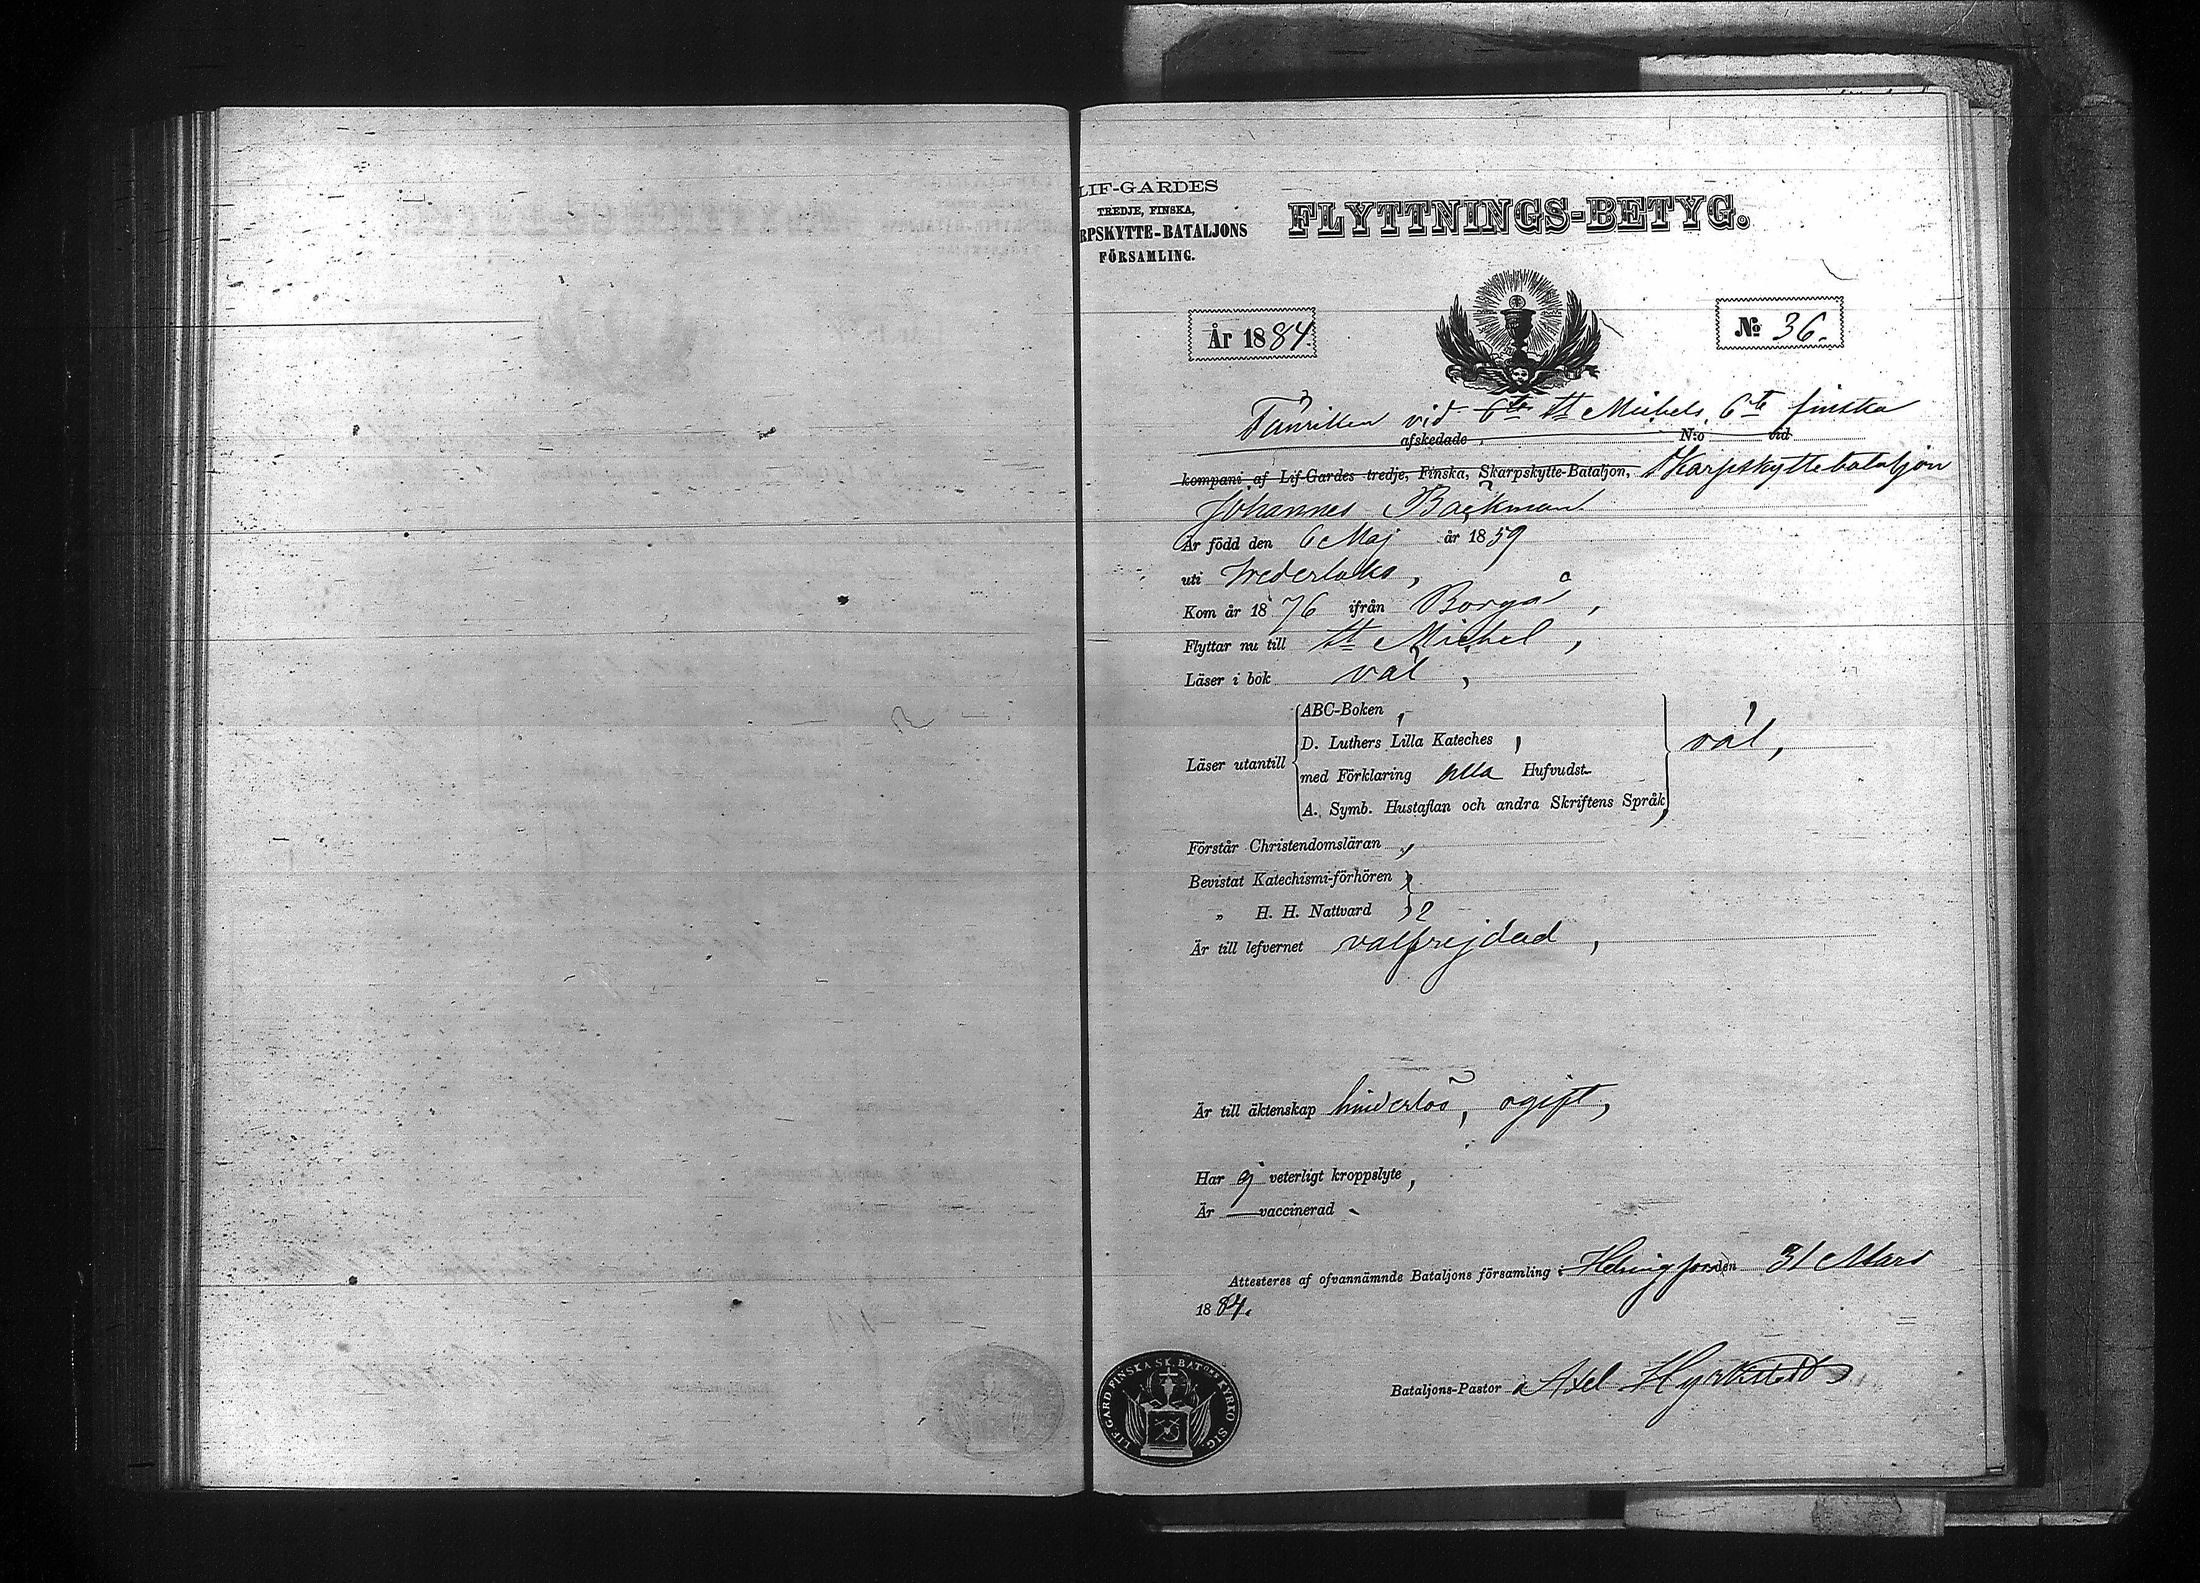 LIF-GARDES
TREDJE, FINSKA,
RPSKYTTE-BATALJONS
FÖRSAMLING.
FLYTTNINGS-BETYG.
År 1884.
No 36.
Fänriken vid 6te St Michels 6te finska
afskedade N:o vid
kompani af Lif-Gardes tredje, Finska, Skarpskytte-Bataljon, Skarpskyttebataljon
Johannes Backman
Är född den 6 Maj år 1859
uti Wederlaks,
Kom år 1876 ifrån Borgå,
Flyttar nu till St Michel,
Läser i bok väl,
Läser utantill
ABC-Boken,
D. Luthers Lilla Kateches,
med Förklaring alla Hufvudst.
A. Symb. Hustaflan och andra Skriftens Språk,
väl,
Förstår Christendomsläran,
Bevistat Katechismi-förhören
„ H. H. Nattvard
Är till lefvernet välfrejdad,
Är till äktenskap hinderlös, ogift,
Har ej veterligt kroppslyte,
Är — vaccinerad
Attesteres af ofvannämnde Bataljons församling i Helsingfors den 31 Mars
1884.
Bataljons-Pastor Axel Hyrkstedt
LIF-GARD FINSKA SK. BATONS KYRKO SIG.